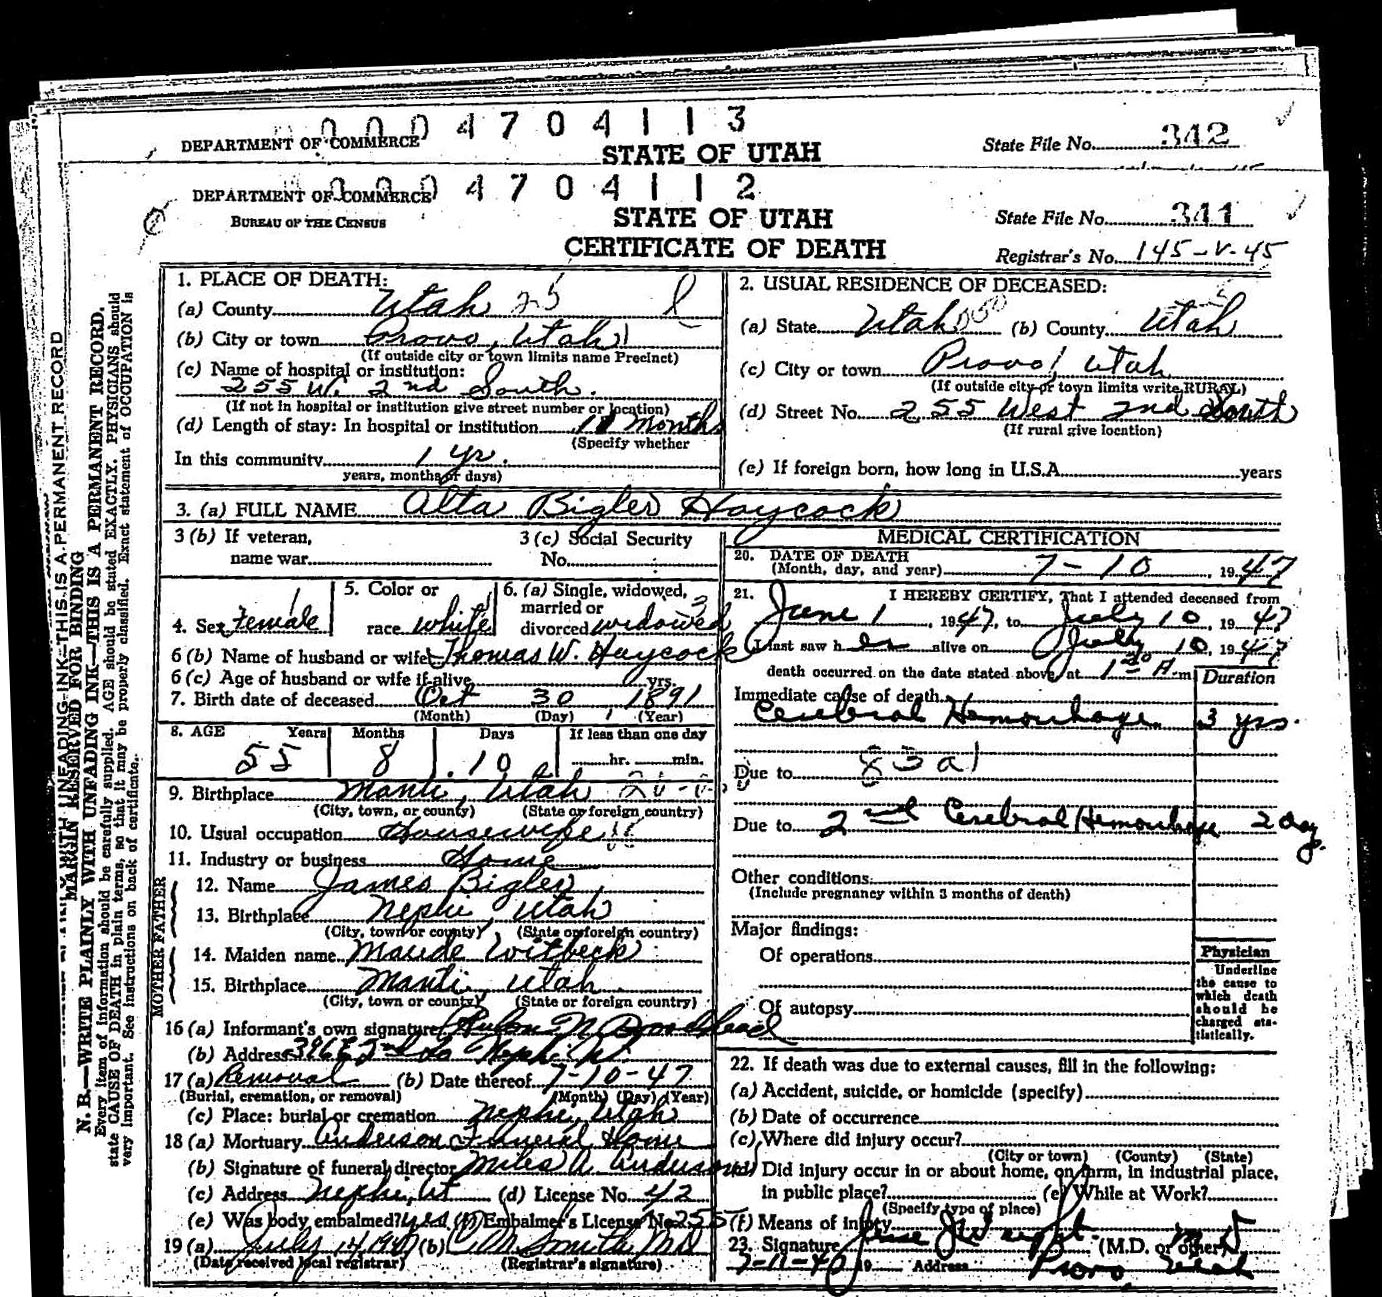 0004704113
DEPARTMENT OF COMMERCE
STATE OF UTAH
State File No. 342
0004704112
DEPARTMENT OF COMMERCE
BUREAU OF THE CENSUS
STATE OF UTAH
CERTIFICATE OF DEATH
State File No. 341
Registrar's No. 145-V-45
N. B.—WRITE PLAINLY WITH UNFADING INK—THIS IS A PERMANENT RECORD.
MARGIN RESERVED FOR BINDING
Every item of information should be carefully supplied. AGE should be stated EXACTLY. PHYSICIANS should
state CAUSE OF DEATH in plain terms, so that it may be properly classified. Exact statement of OCCUPATION is
very important. See instructions on back of certificate.
1. PLACE OF DEATH:
(a) County Utah 25
(b) City or town Provo, Utah
(If outside city or town limits name Precinct)
(c) Name of hospital or institution:
255 W. 2nd South.
(If not in hospital or institution give street number or location)
(d) Length of stay: In hospital or institution months
(Specify whether
In this community 1 yr.
years, months or days)
2. USUAL RESIDENCE OF DECEASED:
(a) State Utah (b) County Utah
(c) City or town Provo, Utah
(If outside city or town limits write RURAL)
(d) Street No. 255 West 2nd South
(If rural give location)
(e) If foreign born, how long in U.S.A. years
3. (a) FULL NAME Alta Bigler Haycock
3 (b) If veteran,
name war
3 (c) Social Security
No.
4. Sex Female
5. Color or
race white
6. (a) Single, widowed,
married or
divorced widowed
6 (b) Name of husband or wife Thomas W. Haycock
6 (c) Age of husband or wife if alive yrs.
7. Birth date of deceased Oct 30, 1891
(Month) (Day) (Year)
8. AGE Years Months Days If less than one day
55 8 10 hr. min.
9. Birthplace Manti, Utah
(City, town, or county) (State or foreign country)
10. Usual occupation Housewife
11. Industry or business Home
FATHER
12. Name James Bigler
13. Birthplace Nephi, Utah
(City, town or county) (State or foreign country)
MOTHER
14. Maiden name Maude Witbeck
15. Birthplace Manti, Utah
(City, town or county) (State or foreign country)
16 (a) Informant's own signature
(b) Address 396 E 2nd So Nephi, Ut.
17 (a) Removal (b) Date thereof 7-10-47
(Burial, cremation, or removal) (Month) (Day) (Year)
(c) Place: burial or cremation Nephi, Utah
18 (a) Mortuary Anderson Funeral Home
(b) Signature of funeral director Miles A. Anderson
(c) Address Nephi, Ut (d) License No. 42
(e) Was body embalmed? yes (f) Embalmer's License No. 255
19 (a) July 14 1947 (b) C M Smith MD
(Date received local registrar) (Registrar's signature)
MEDICAL CERTIFICATION
20. DATE OF DEATH
(Month, day, and year) 7-10, 1947
21. I HEREBY CERTIFY, That I attended deceased from
June 1, 1947, to July 10, 1947
I last saw her alive on July 10, 1947
death occurred on the date stated above at A.m
Duration
Immediate cause of death
Cerebral Hemorrhage 3 yrs.
Due to 83a1
Due to 2nd Cerebral Hemorrhage 2 day
Other conditions:
(Include pregnancy within 3 months of death)
Major findings:
Of operations
Of autopsy
Physician
Underline
the cause to
which death
should be
charged sta-
tistically.
22. If death was due to external causes, fill in the following:
(a) Accident, suicide, or homicide (specify)
(b) Date of occurrence
(c) Where did injury occur?
(City or town) (County) (State)
(d) Did injury occur in or about home, on farm, in industrial place,
in public place? (e) While at Work?
(Specify type of place)
(f) Means of injury
23. Signature (M.D. or other) M D
19 Address Provo Utah